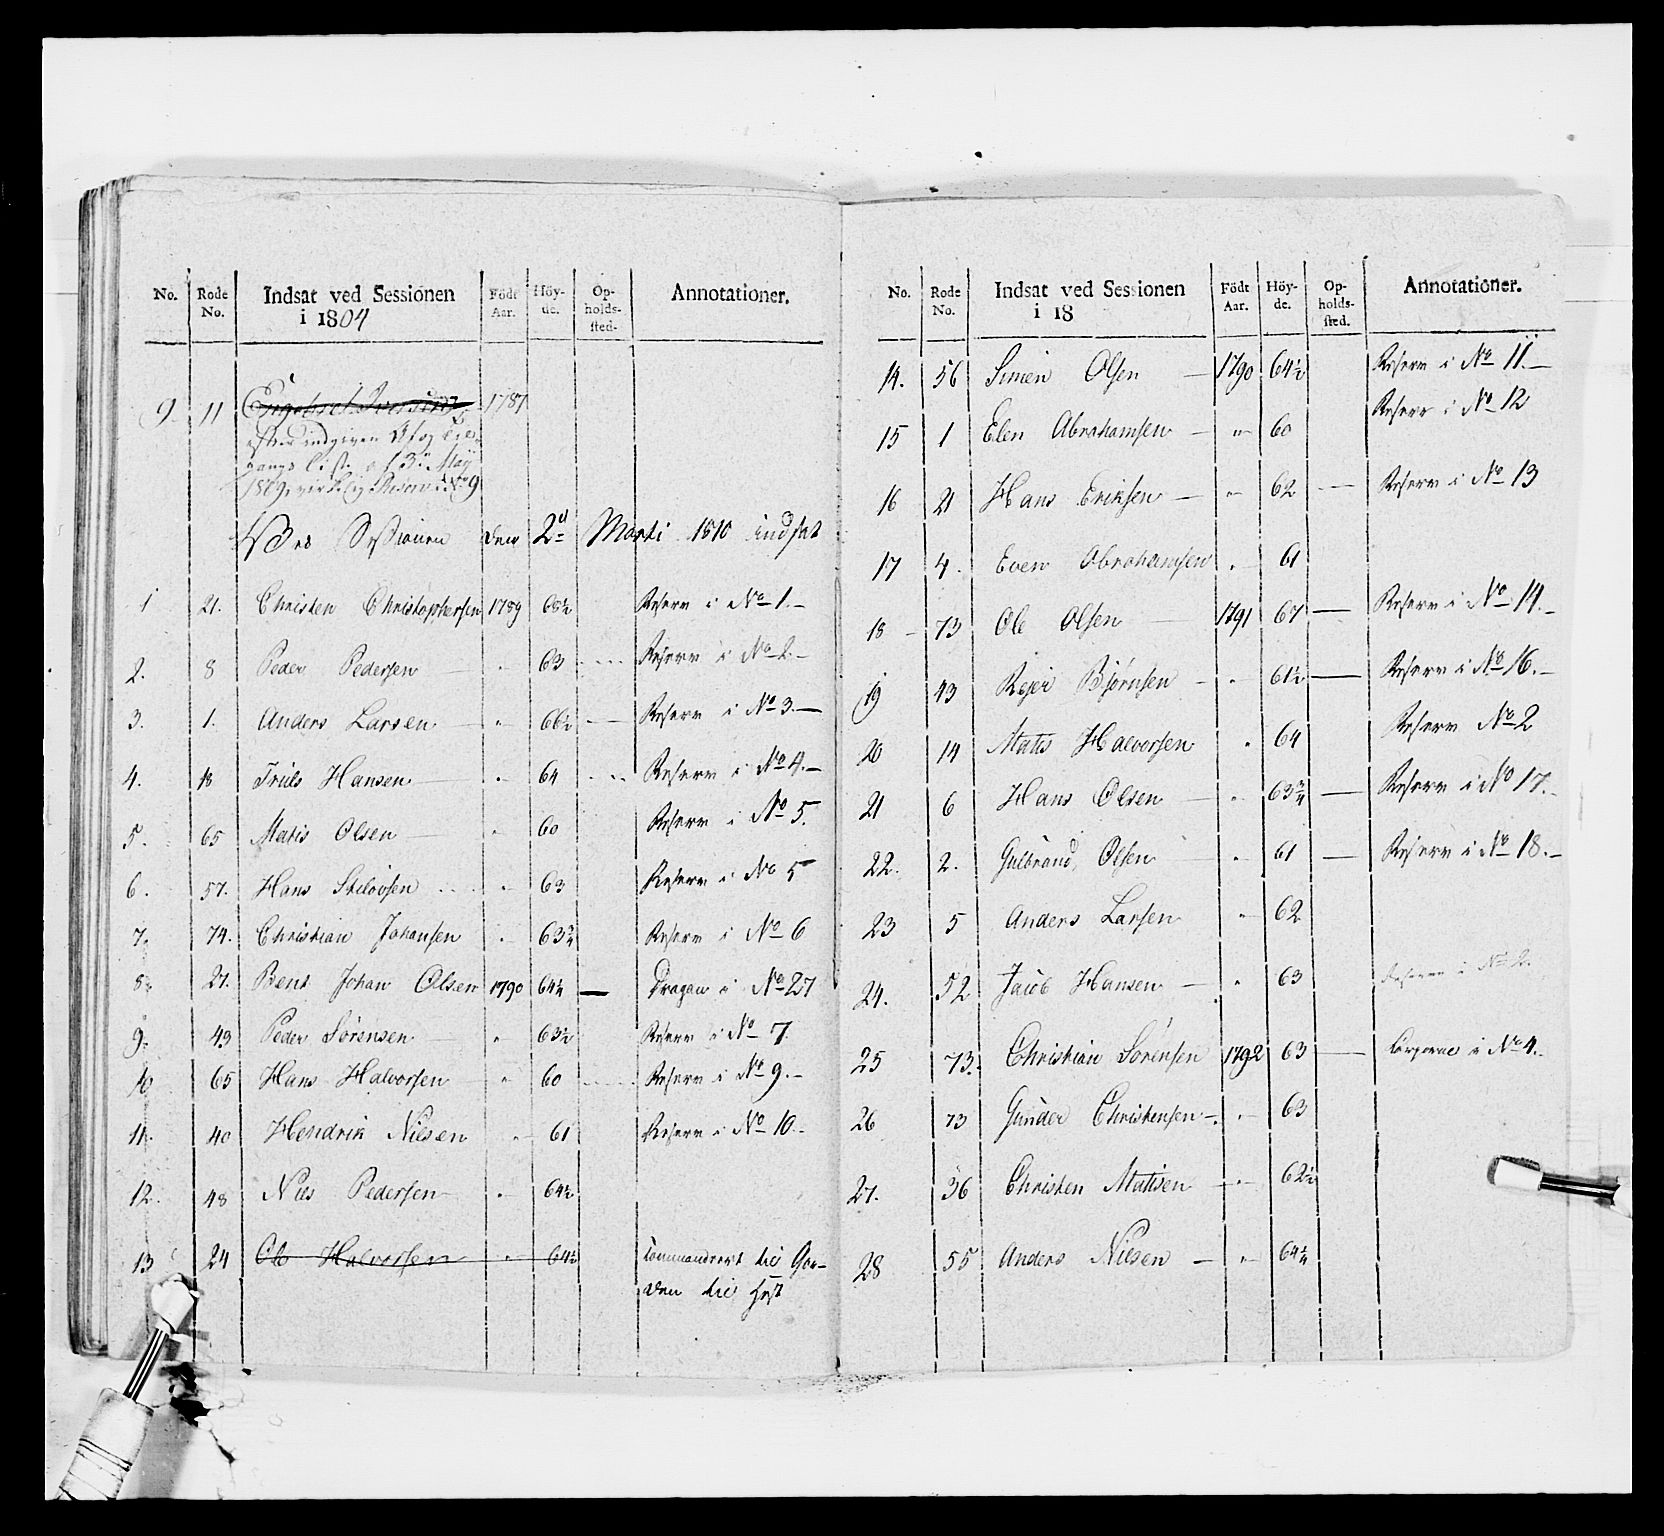 No. Rode No. Indsat ved Sessionen i 1804 Födt Aar. Höy-de. Op-holds-sted. Annotationer.
9. 11 1787
efter indgiven Af og Til-
gangs List. af 3. May
1809
Ved Sessionen den 2d Marti 1810 indsat
1 21. Christen Christophersen 1789 65½ Reserv i No 1.-
2. 8 Peder Pedersen — " 63 Reserv i No 2.-
3. 1. Anders Larsen — " 66½ — Reserv i No 3.—
4. 18 Truls Hansen — " 64 Reserv i No 4.-
5. 65 Matis Olsen — " 60 Reserv i No 5.
6. 57. Hans Skelovsen " 63 Reserv i No 5
7. 74. Christian Johansen " 63¾ Reserv i No 6
8. 27. Bent Johan Olsen 1790 64¼ — Dragon i No 27
9. 43 Peder Sørensen — " 63½ Reserv i No 7.
10 65 Hans Halvorsen " 60 Reserv i No 9.-
11. 40 Hendrik Nilsen " 61 Reserv i No 10.-
12. 48 Nils Pedersen " 64½
13 24 Ole Halvorsen " 64½ Commanderet til Gar-
den til Hest
No. Rode No. Indsat ved Sessionen i 18 Födt Aar. Höy-de. Op-holds-sted. Annotationer.
14. 56 Simen Olsen — 1790 64½ Reserv i No 11.—
15 1 Elen Abrahamsen — " 60 Reserv i No 12
16 21 Hans Eriksen — " 62 — Reserv i No 13
17 4. Even Abrahamsen " 61
18 - 73 Ole Olsen — 1791 67 — Reserv i No 14.-
19 43 Rejer Bjørnsen - " 61½ — Reserv i No 16.-
20 14 Matis Halvorsen " 64 Reserv No 2
21 6 Hans Olsen — " 63¾ — Reserv i No 17.-
22. 2. Gulbrand Olsen — " 61 — Reserv i No 18.-
23 5 Anders Larsen " 62
24. 52 Jacob Hansen — " 63 Reserv i No 2.
25 73. Christian Sørensen 1792 63 — i No 4.-
26 73 Gunder Christensen - " 63
27. 36 Christen Matisen — " 62½
28 55 Anders Nilsen — " 64¼